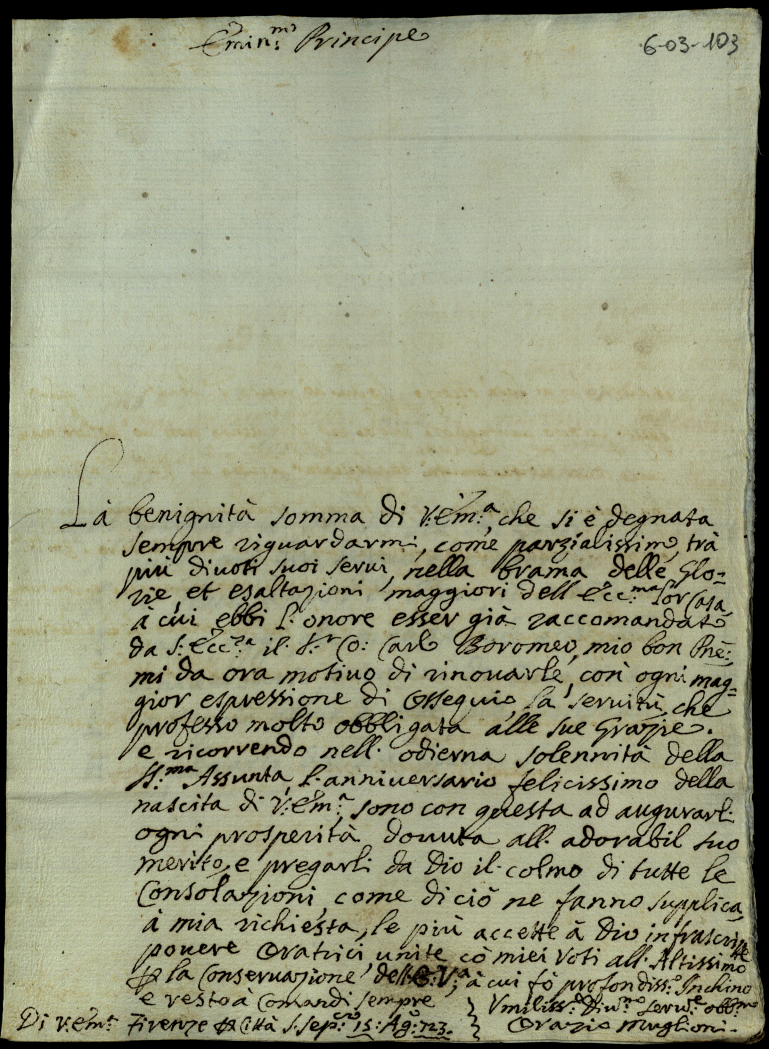 Emin:mo Principe
6-03-103
La benignità somma di V:Em:a, che si è degnata
sempre riguardarmi, come parzialissimo, trà
più divoti suoi servi, nella brama delle Glo=
rie et esaltazioni maggiori dell' Ecc:ma Lor Casa,
à cui ebbi l'onore esser già raccomandato
da S: Ecc:za il S:r Co: Carlo Boromeo, mio bon Pne:
mi da ora motivo di rinovarle, con ogni mag=
gior espressione di Ossequio la servitù, che
professo molto obbligata alle sue Grazie.
e ricorrendo nell' odierna solennità della
SS:ma Assunta, l'anniversario felicissimo della
nascita di V:Em:a, sono con questa ad augurarli
ogni prosperità dovuta all' adorabil suo
merito, e pregarli da Dio il colmo di tutte le
Consolazioni, come di ciò ne fanno supplica,
à mia richiesta, le più accette à Dio infrascritte
povere Oratrici unite cò miei Voti all' Altissimo
per la Conservazione dell' V:a, à cui fò profondiss:o Inchino
e resto à Comandi sempre
Di V:Em:a Firenze per Città S. Sep:ro 15: Ag:o 723.
Umiliss:o Div:mo Serv:re obb:mo
Orazio Muglioni.